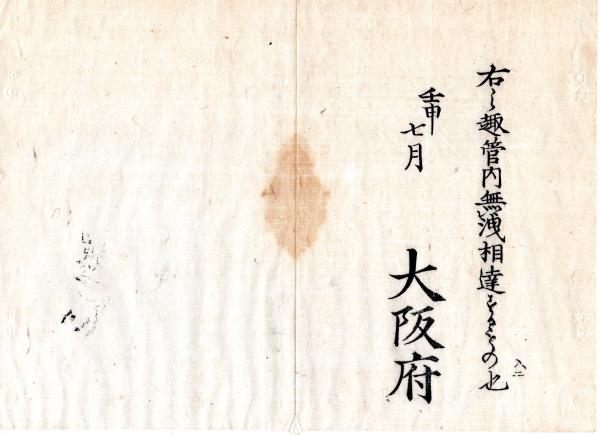 右之趣管内無洩相達するもの也
壬申七月
大阪府